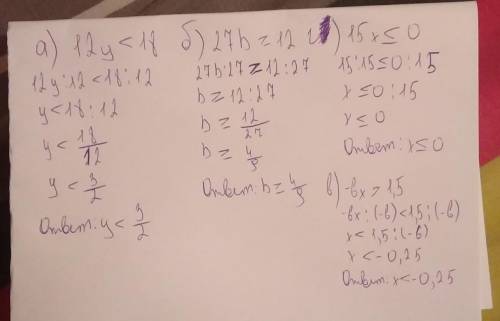 а) 12y < 18
12y:12 < 18:12
y < 18:12
y < 18/12
y < 3/2
Ответ: y < 3/2
б) 27b ≥ 12
27b:27 ≥ 12:27
b ≥ 12:27
b ≥ 12/27
b ≥ 4/9
Ответ: b ≥ 4/9
) 15x ≤ 0
15:15 ≤ 0:15
x ≤ 0:15
x ≤ 0
Ответ: x ≤ 0
в) -6x > 1,5
-6x:(-6) < 1,5:(-6)
x < 1,5:(-6)
x < -0,25
Ответ: x < -0,25